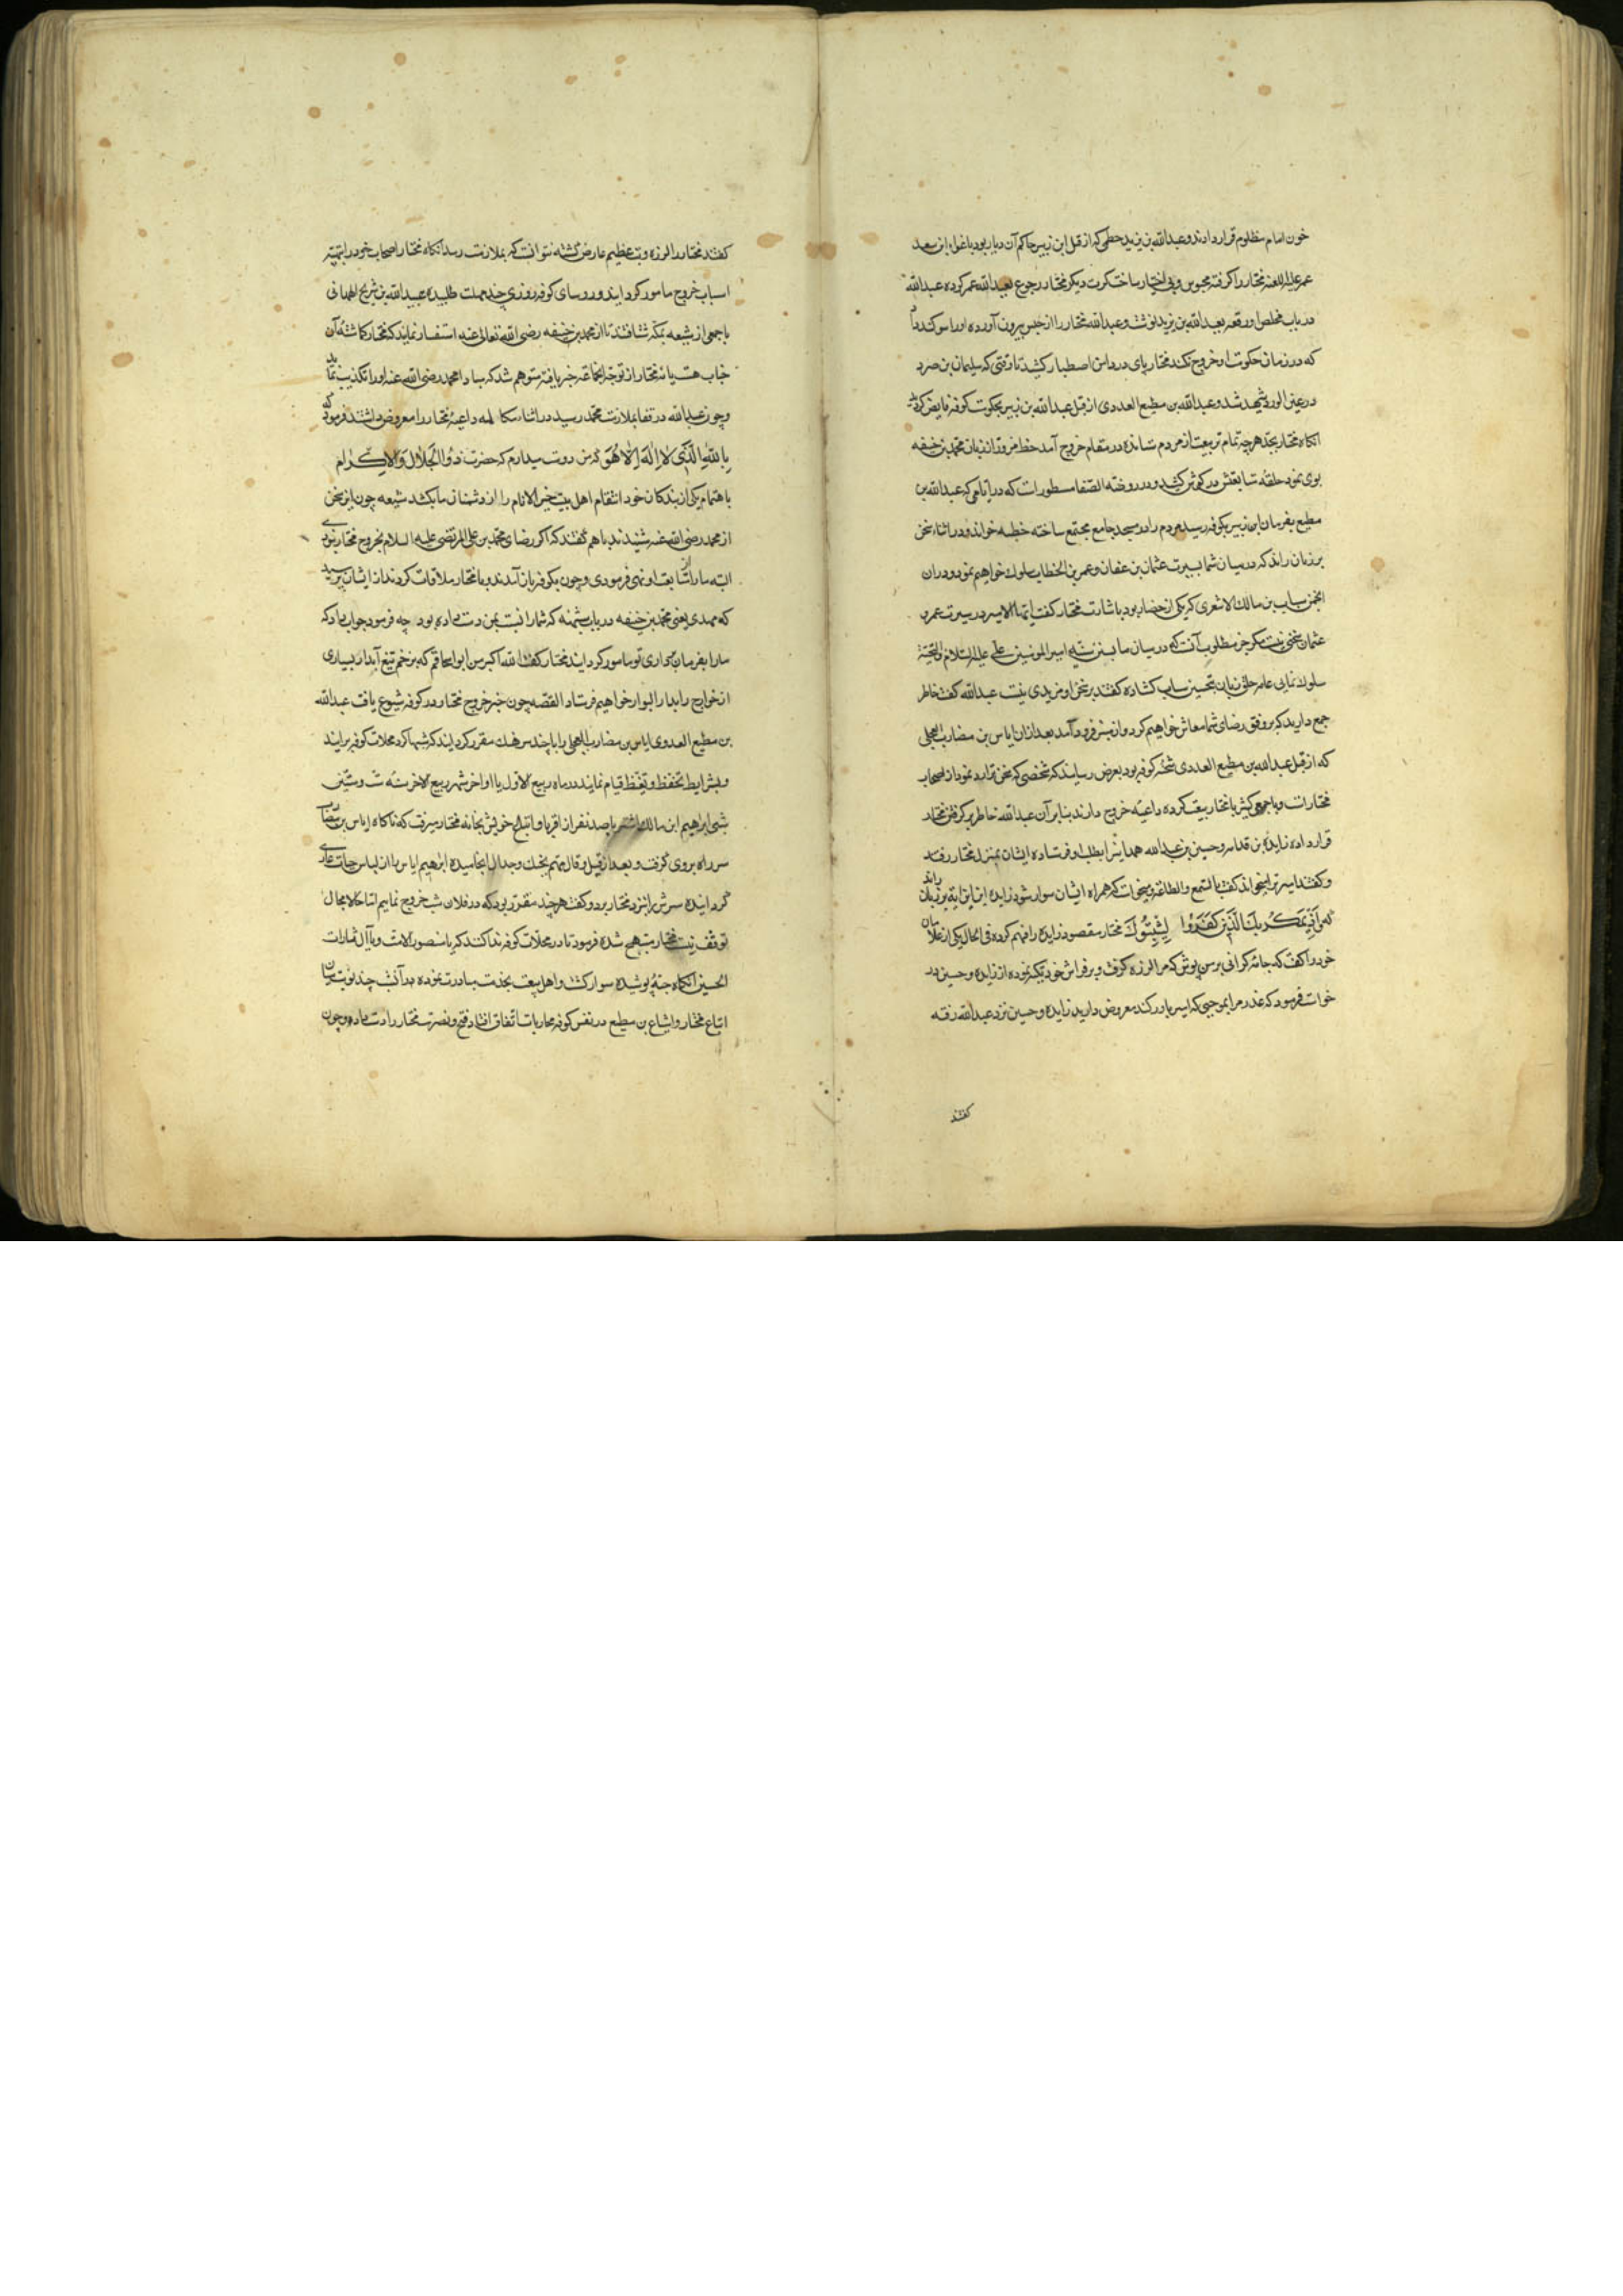 خون امام مظلوم قرار دادند و عبدالله بن یزید خطمی که از قبل ابن زبیر حاکم آن دیار بود باغواء ابن سعد
عمر علیه اللعنه مختار را گرفته محبوس و بی اختیار ساخت کرت دیگر مختار رجوع بعبدالله عمر کرده عبدالله
در باب مخلص او رقعه بعبدالله بن یزید نوشت و عبدالله مختار را از حبس بیرون آورده او را سوکند داد
که در زمان حکومت او خروج نکند مختار پای در دامن اصطبار کشید تا وقتی که سلیمان بن صرد
در عین الورد شهید شد و عبدالله بن مطیع العددی از قبل عبدالله بن زبیر بحکومت کوفه فایض کردید
انکاه مختار بجد هرچه تمام تر بیعت از مردم ستانده در مقام خروج آمد خط مزور از زبان محمد بن حنیفه
بوی نمود حلقه متابعتش در کوش کشید و در روضة الصفا مسطورات که در ایامی که عبدالله بن
مطیع بفرمان ابن زبیر بکوفه رسید مردم را در مسجد جامع مجتمع ساخته خطبه خواند و در اثناء سخن
بر زبان راند که در میان شما بسیرت عثمان بن عفان و عمر بن الخطاب سلوک خواهیم نمود و در ان
انجمن سایب بن مالک الاشعری که یکی از حضار بود باشارت مختار کفت ایها الامیر در سیرت عمر و
عثمان سخنی نیست مکر خیر مطلوب آنست که در میان ما بسنن سنیه امیر المومنین علی علیه السلام و التحیة
سلوک نمایی عامه خلق زبان بتحسین سایب کشاده کفتند بر سخن او مزیدی نیست عبدالله کفت خاطر
جمع دارید که بر وفق رضای شما معاش خواهیم کرد و از منبر فرود آمد بعد از ان ایاس بن مضارب العجلی
که از قبل عبدالله بن مطیع العددی شحنه کوفه بود بعرض رسانید که شخصی که سخن ترا رد نمود از اصحاب
مختار است و با جمعی کثیر با مختار بیعت کرده داعیه خروج دارند بنابر آن عبدالله خاطر بر کرفتن مختار
قرار داده زایدة بن قدامه و حسین بن عبدالله همدانی را بطلب او فرستاده ایشان بمنزل مختار رفتند
و کفتند امیر ترا میخواند کفت بالسمع و الطاعه و میخواست که همراه ایشان سوار شود زایده این آیة بر زبان راند
که و اذ یمکر بک الذین کفروا لیثبتوک مختار مقصود زایده را فهم کرده فی الحال یکی از غلامان
خود را کفت که جامه کرانی بر من پوش که مرا لرزه کرفت و بر فراش خود تکیه نموده از زایده و حسین در
خواست فرمود که عذر مرا بموجبی که امیر باور کند معروض دارید زایده و حسین نزد عبدالله رفته
کفتند
کفتند مختار را لرزه و تب عظیم عارض کشته نتوانست که بملازمت رسد آنکاه مختار اصحاب خود را بتهیه
اسباب خروج مامور کردانید و روسای کوفه روزی چند مهلت طلبیده عبدالله بن شریح الهمدانی
با جمعی از شیعه بمکه شتافتند تا از محمد بن حنیفه رضی الله تعالی عنه استفسار نمایند که مختار کماشته آن
جناب هست یا نه مختار از توجه انجماعه خبر یافته متوهم شد که مبادا محمد رضی الله عنه او را تکذیب نماید
و چون عبدالله و رفقا بملازمت محمد رسید در اثناء مکالمه داعیه مختار را معروض داشتند فرمود که
بالله الذی لا اله الا هو که من دوست میدارم که حضرت ذو الجلال والاکرام
باهتمام یکی از بندکان خود انتقام اهل بیت خیر الانام را از دشمنان ما بکشد شیعه چون این سخن
از محمد رضی الله عنه شنیدند با هم کفتند که اکر رضای محمد بن علی المرتضی علیه السلام بخروج مختار نبودی
البته ما را از متابعت او نهی فرمودی و چون بکوفه باز آمدند و با مختار ملاقات کردند از ایشان پرسید
که مهدی یعنی محمد بن حنیفه در باب بیعتنه که شما را نسبت بمن دست داده بود چه فرمود جواب داد که
ما را بفرمان برداری تو مامور کردانید مختار کفت الله اکبر من ابو اسحاقم که بزخم تیغ آبدار بسیاری
از خوارج را بدار البوار خواهیم فرستاد القصه چون خبر خروج مختار در کوفه شیوع یافت عبدالله
بن مطیع العدوی ایاس بن مضارب العجلی را با چند سرهنک مقرر کردانید که شبها کرد محلات کوفه برایند
و بشرایط تحفظ و تیقظ قیام نمایند در ماه ربیع الاول یا اواخر شهر ربیع الاخر سنه ست و ستین
شبی ابراهیم ابن مالک اشتر با صد نفر از اقربا و اتباع خویش بخانه مختار میرفت که ناکاه ایاس بن مضارب
سر راه بر وی کرفت و بعد از قیل و قال مهم بجنک و جدال انجامیده ابراهیم ایاس را از لباس حیات عاری
کردانیده سرش را نزد مختار برد و کفت هرچند مقرر بود که در فلان شب خروج نمایم اما حالا مجال
توقف نیست مختار مبتهج شده فرمود تا در محلات کوفه ندا کنند که یا منصور امت و یا آل ثارات
الحسین آنکاه جبه پوشیده سوار کشت و اهل بیعت بخدمت مبادرت نموده در آنشب چند نوبت میان
اتباع مختار و اشیاع بن مطیع در نفس کوفه محاربات اتفاق افتاد فتح و نصرت مختار را دست داده و چون